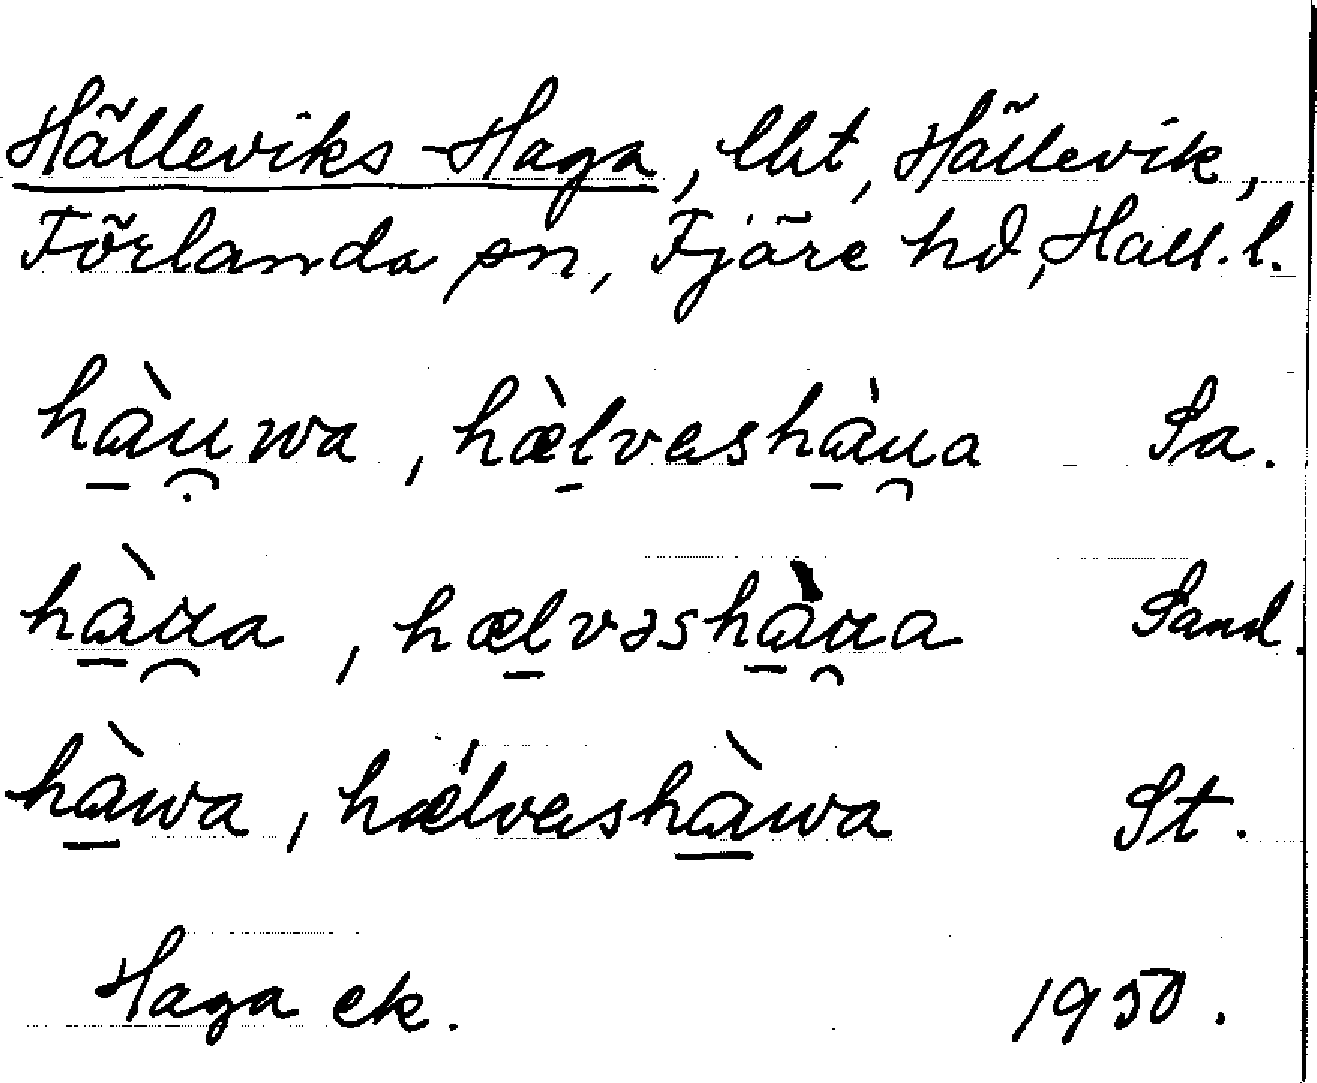 Hälleviks-Haga, lht, Hällevik,
Förlanda sn, Fjäre hd, Hall. l.
hàu̯wa, hæ̀lveshàu̯a Sa.
hàu̯a, hælvəshàu̯a Sand.
hàwa, hǽlveshàwa St.
Haga ek. 1950.